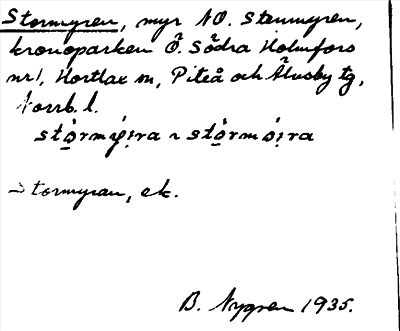 Stormyren, myr NO. Stenmyren,
kronoparken Ö. Södra Holmfors
nr 1, Hortlax sn, Piteå och Älvsby tg,
Norrb. l.
Stormyran, ek.
B. Nygren 1935.